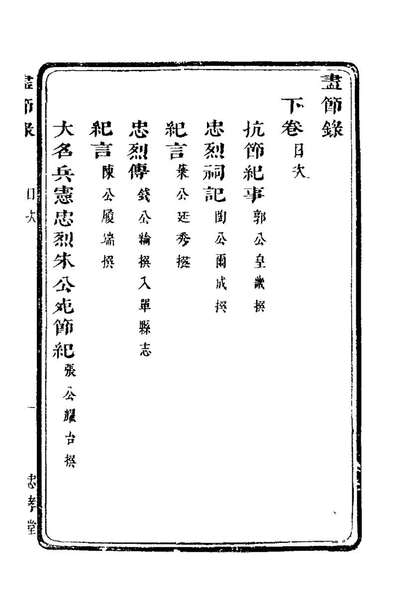 盡節錄
下卷目次
抗節紀事 郭公皇畿撰
忠烈祠記 閻公爾成撰
紀言 葉公廷秀撰
忠烈傳 錢公 撰入單縣志
紀言 陳公履端撰
大名兵憲忠烈朱公死節紀 張公耀台撰
盡節錄
目次
一
忠孝堂